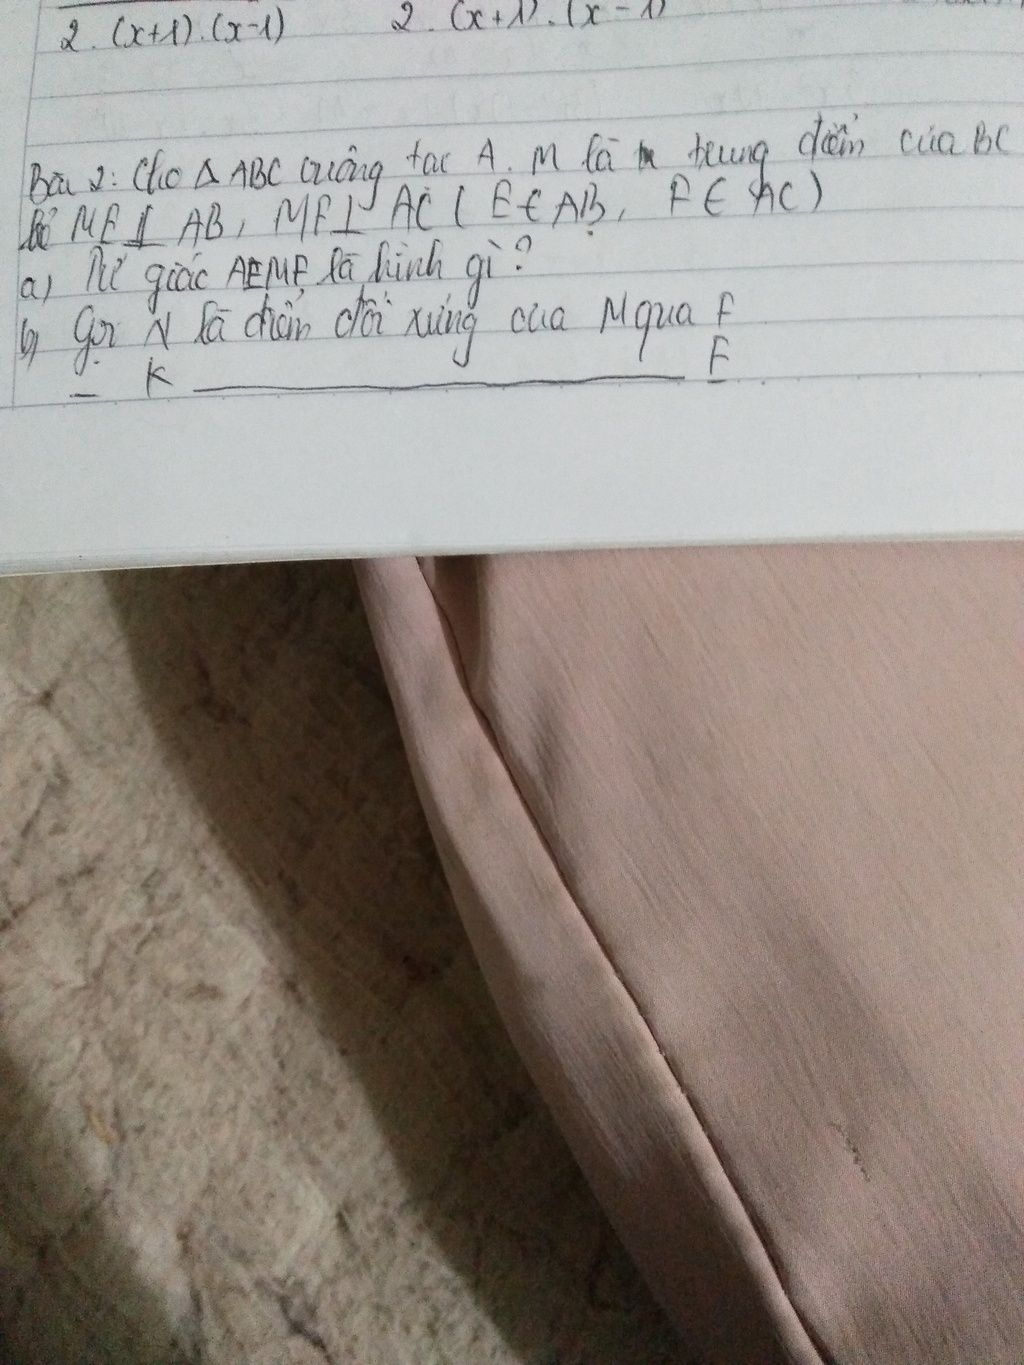 2. (x+1).(x-1) 2. (x+1).(x-1)
Bài 2: Cho Δ ABC vuông tại A. M là trung điểm của BC
Kẻ ME ⊥ AB, MF ⊥ AC ( E ∈ AB, F ∈ AC)
a) Tứ giác AEMF là hình gì?
b) Gọi N là điểm đối xứng của M qua F
_ K ________ E